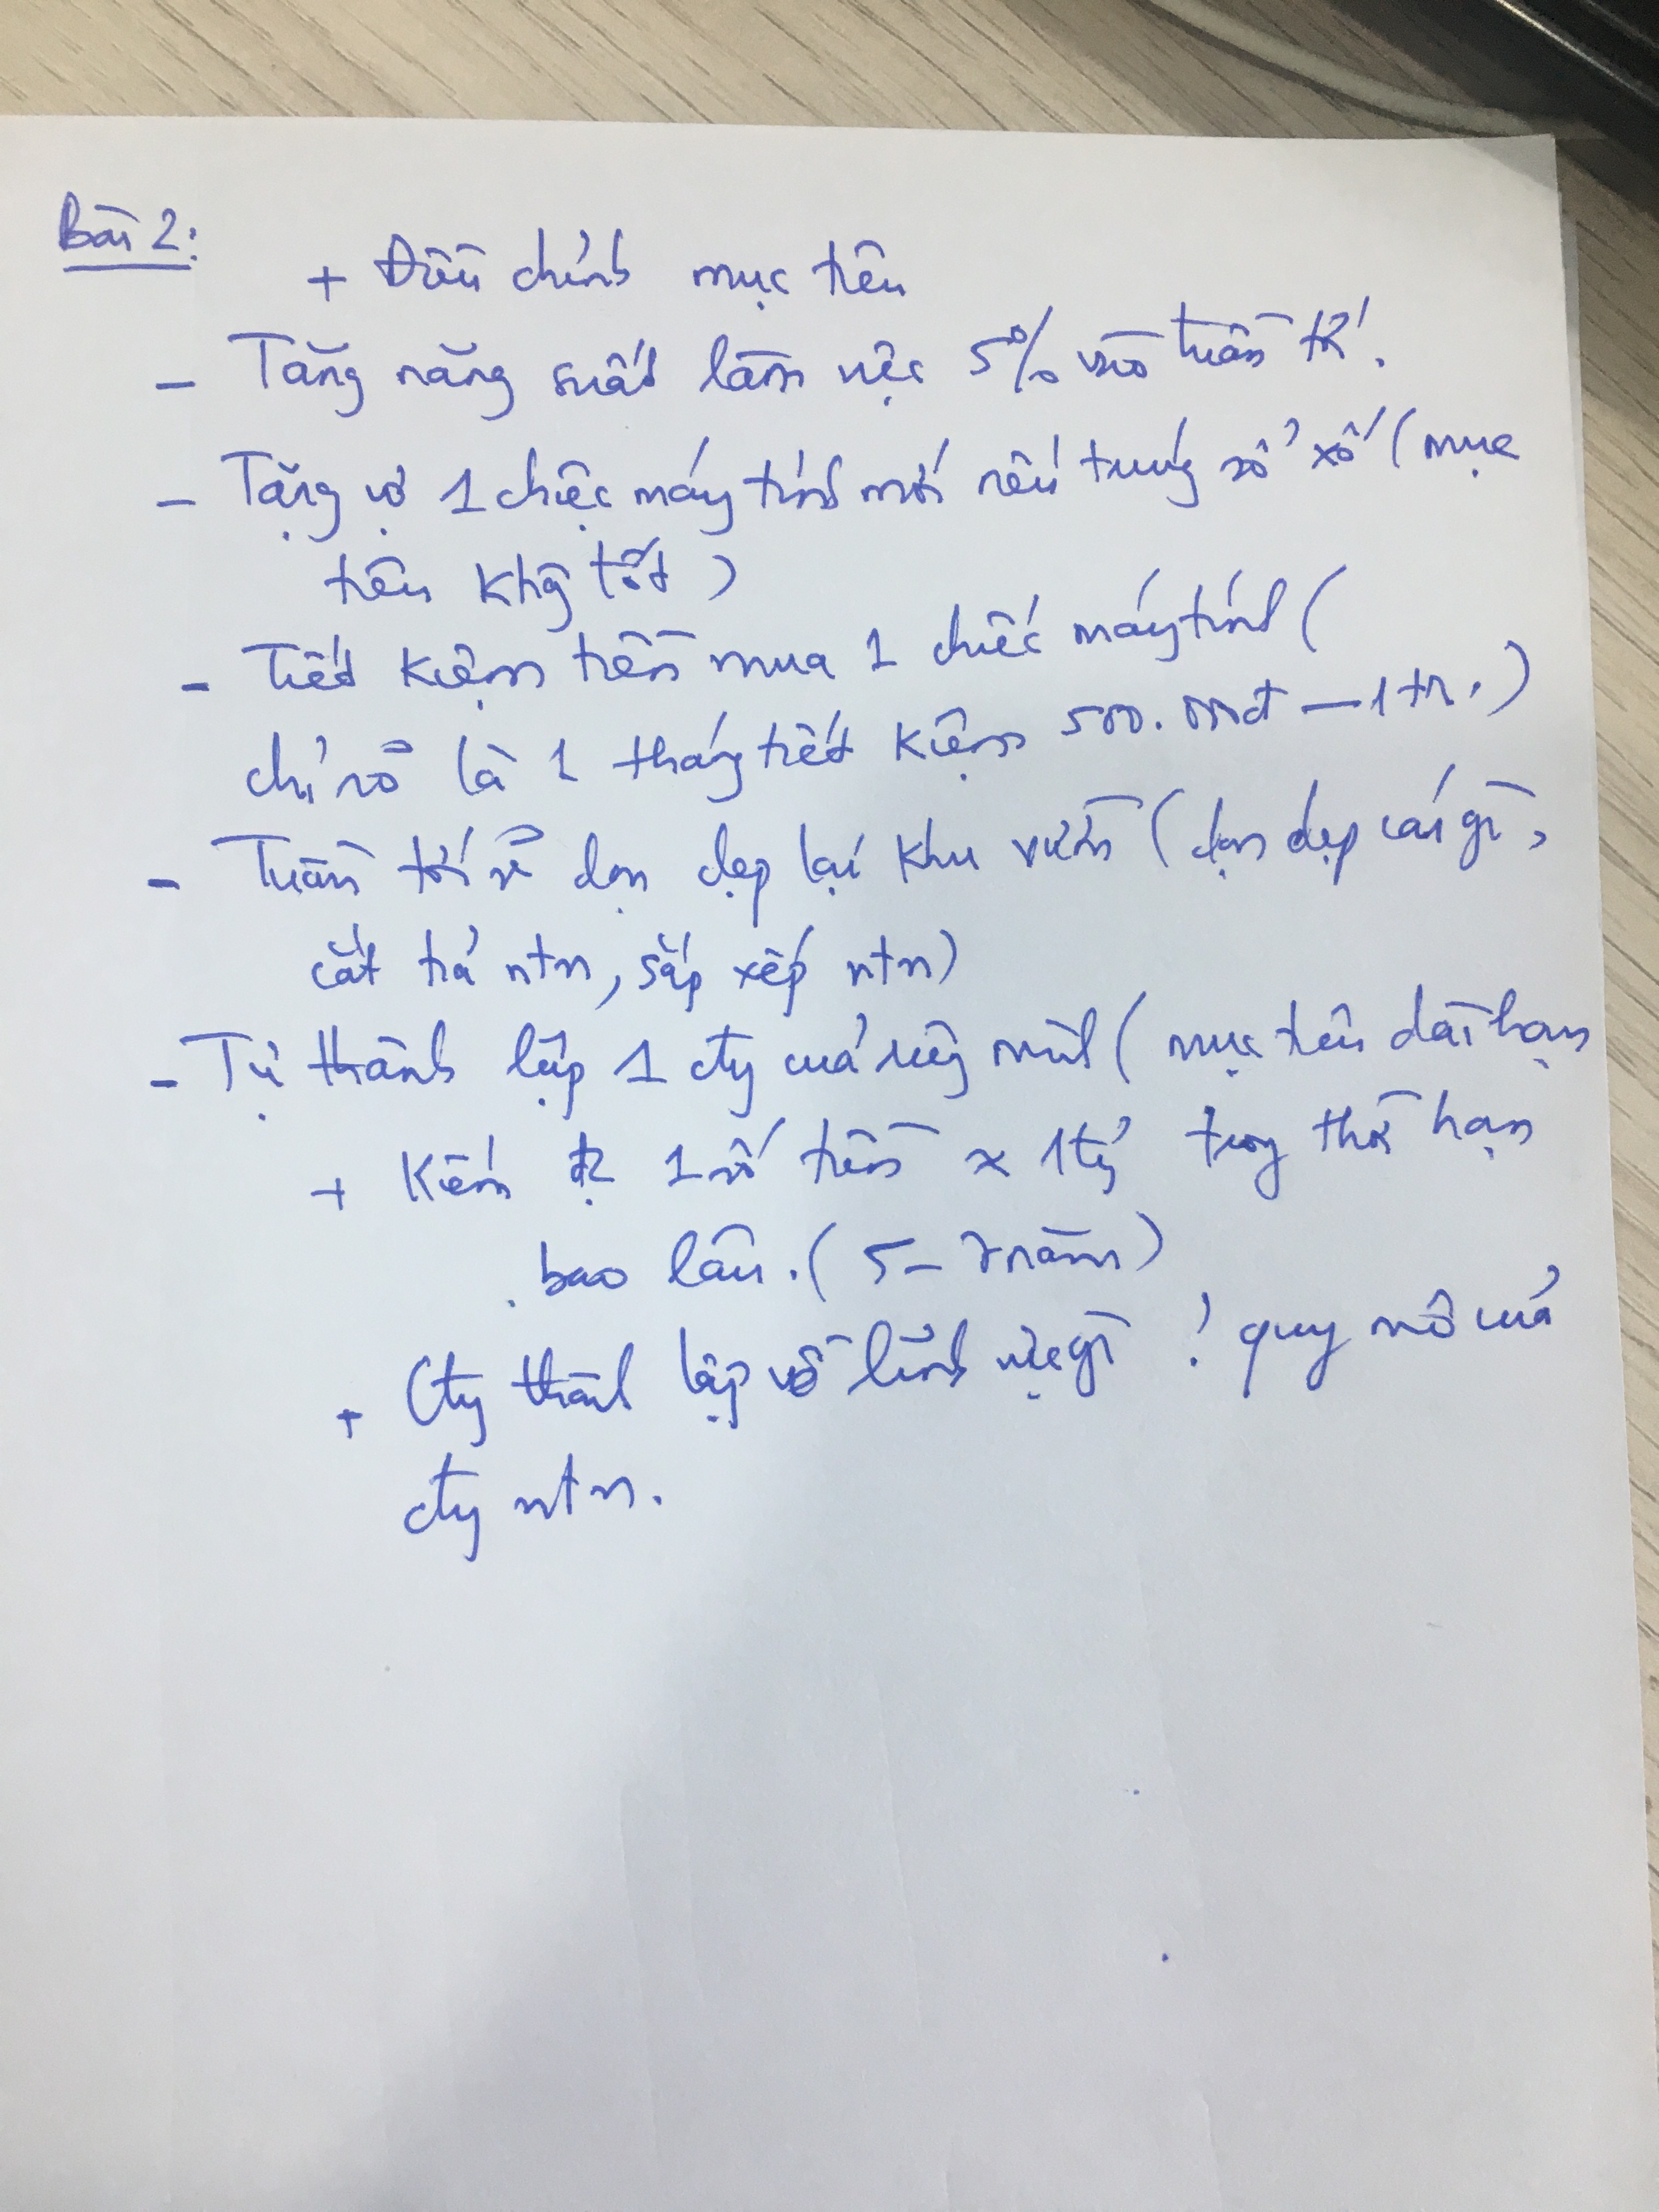 Bài 2:
+ Điều chỉnh mục tiêu
- Tăng năng suất làm việc 5% vào tuần tới.
- Tặng vợ 1 chiệc máy tính mới nếu trúng xổ xố (mục
tiêu khg tốt)
- Tiết kiệm tiền mua 1 chiếc máy tính (
chỉ rõ là 1 tháng tiết kiệm 500.000đ - 1 tr.)
- Tuần tới sẽ dọn dẹp lại khu vườn (dọn dẹp cái gì,
cắt tỉa ntn, sắp xếp ntn)
- Tự thành lập 1 cty của riêng mình (mục tiêu dài hạn
+ Kiếm 1 số tiền x 1 tỷ trong thời hạn
bao lâu. (5 - 7 năm)
+ Cty thành lập về lĩnh vực gì ? quy mô của
cty ntn.